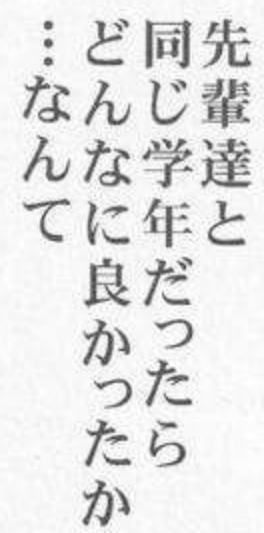 先輩達と
同じ学年だったら
どんなに良かったか
…なんて